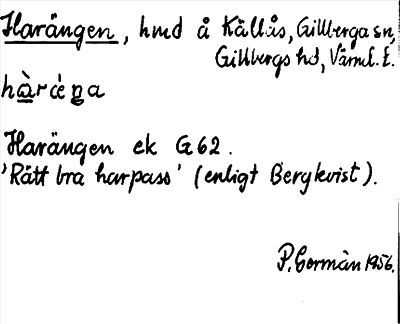 Harängen, hmd å Källås, Gillberga sn,
Gillbergs hd, Värml. l.
hàrέŋa
Harängen ek G 62.
'Rätt bra harpass' (enligt Bergkvist).
P. Gormàn 1956.